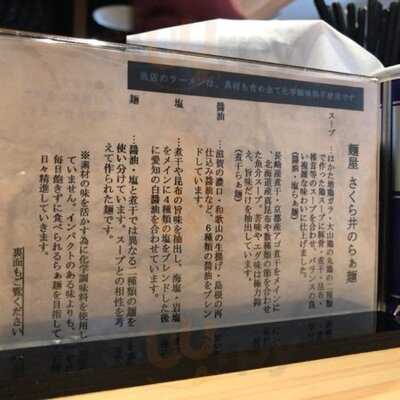 当店のラーメンは、具材も含め全て化学調味料不使用です
麺屋 さくら井のらぁ麺
スープ
…はかた地鶏ガラ・大山鶏の丸鶏の二種類
で作ったスープに豚骨、煮干・昆布・
椎茸等のスープをあわせ、バランスの良
い複雑な味わいに仕上げました。
(醤油・塩らぁ麺)
長崎産煮干、京都産アゴ煮干をメインに
、北海道産真昆布や数種類の節を合わせ
た魚介スープ。苦味やエグ味は極力抑
え、旨味だけを抽出しています。
(煮干らぁ麺)
醤油
…滋賀の濃口・和歌山の生揚げ・島根の再
仕込み醤油など、6種類の醤油をブレン
ドしています。
塩
…煮干や昆布の旨味を抽出し、海塩・岩塩
をメインに4種類の塩をブレンドした後
に愛知の白醤油を合わせています。
麺
…醤油・塩と煮干では異なる二種類の麺を
使い分けています。スープとの相性を考
えて作られた麺です。
※素材の味を活かす為に化学調味料を使用し
ていません。インパクトのある味よりも、
毎日飽きずに食べられるらぁ麺を目指して
日々精進していきます。
裏面もご覧ください